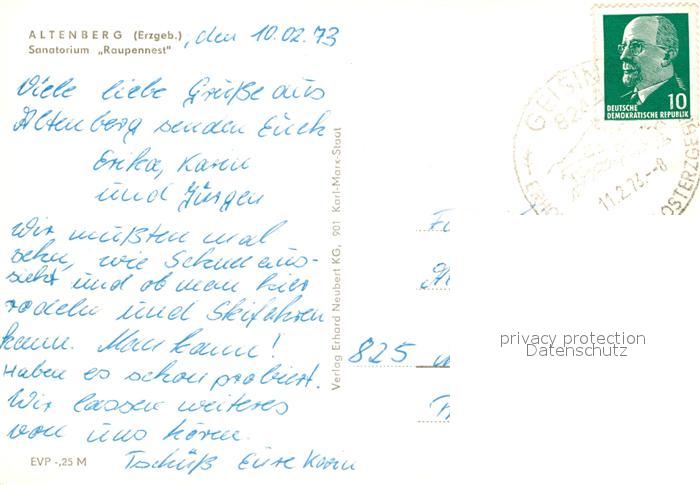 ALTENBERG (Erzgeb.)
Sanatorium „Raupennest"
, den 10.02.73
Viele liebe Grüße aus
Altenberg senden Euch
Erika, Karin
und Jürgen
Wir mußten mal
sehn, wie Schnee aus-
sieht und ob man hier
rodeln und Skifahren
kann. Man kann!
Haben es schon probiert.
Wir lassen weiteres
von uns hören.
Tschüß Eure Karin
EVP -,25 M
Verlag Erhard Neubert KG, 901 Karl-Marx-Stadt
10
DEUTSCHE
DEMOKRATISCHE REPUBLIK
GEISING
824
11.2.73.-8
OSTERZGEB
825
privacy protection
Datenschutz